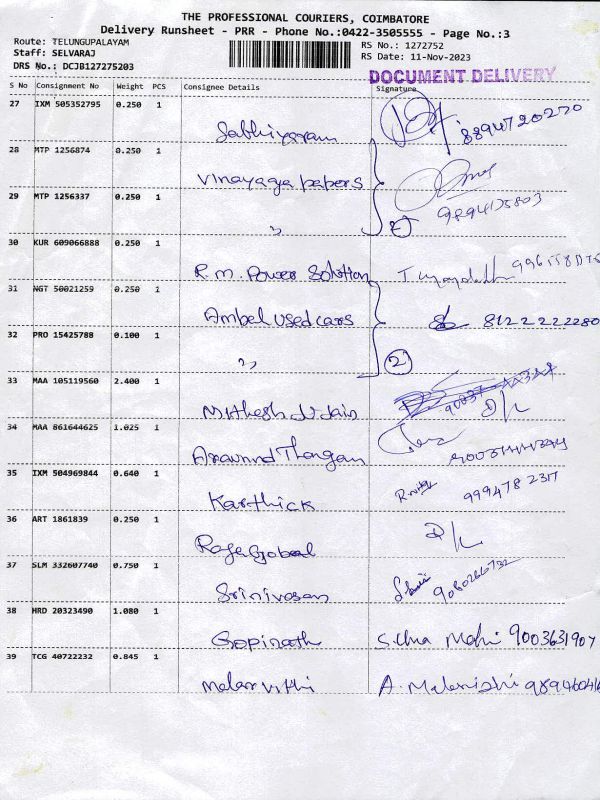 THE PROFESSIONAL COURIERS, COIMBATORE
Delivery Runsheet - PRR - Phone No.:0422-3505555 - Page No.:3
Route: TELUNGUPALAYAM
Staff: SELVARAJ
DRS No.: DCJB127275203
RS No.: 1272752
RS Date: 11-Nov-2023
DOCUMENT DELIVERY
S No Consignment No Weight PCS Consignee Details Signature
27 IXM 505352795 0.250 1
8894720220
28 MTP 1256874 0.250 1
Vinayaga papers
29 MTP 1256337 0.250 1
"
2
30 KUR 609066888 0.250 1
R.M. Power Solution
31 NGT 50021259 0.250 1
Ambal used cars 8122222280
32 PRO 15425788 0.100 1
" 2
33 MAA 105119560 2.400 1
Mithesh U Jain D/L
34 MAA 861644625 1.025 1
Aravind Thangam
35 IXM 504969844 0.640 1
Karthick 999478 2317
36 ART 1861839 0.250 1
Rajagobal D/L
37 SLM 332607740 0.750 1
Srinivasan 9080266732
38 HRD 20323490 1.080 1
Gopinath 9003631907
39 TCG 40722232 0.845 1
Malarvithi A.